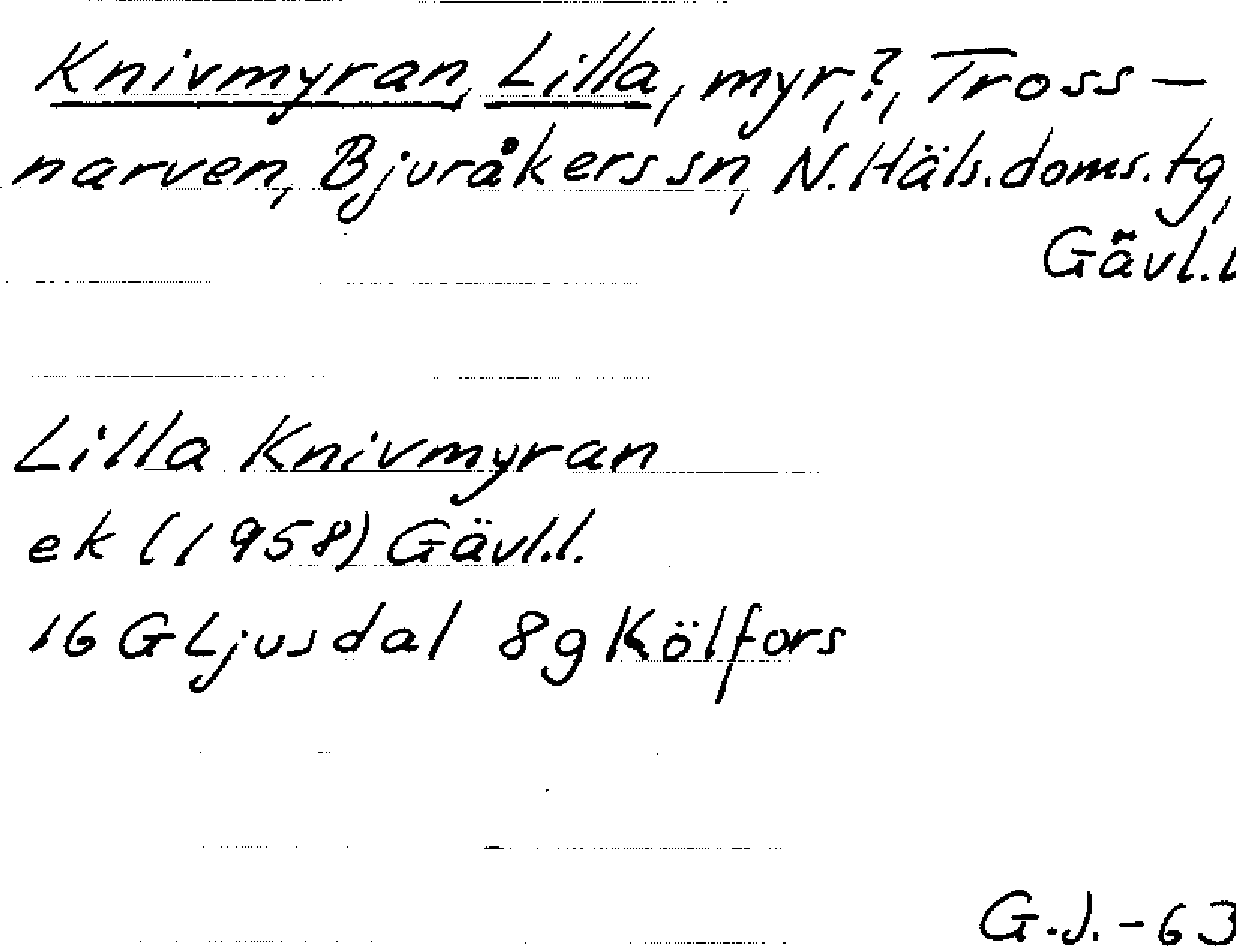 Knivmyran, Lilla, myr,?, Tross-
narven, Bjuråkers sn, N.Häls.doms.tg,
Gävl.l
Lilla Knivmyran
ek (1958) Gävl.l.
16 G Ljusdal 8g Kölfors
G.J.-63